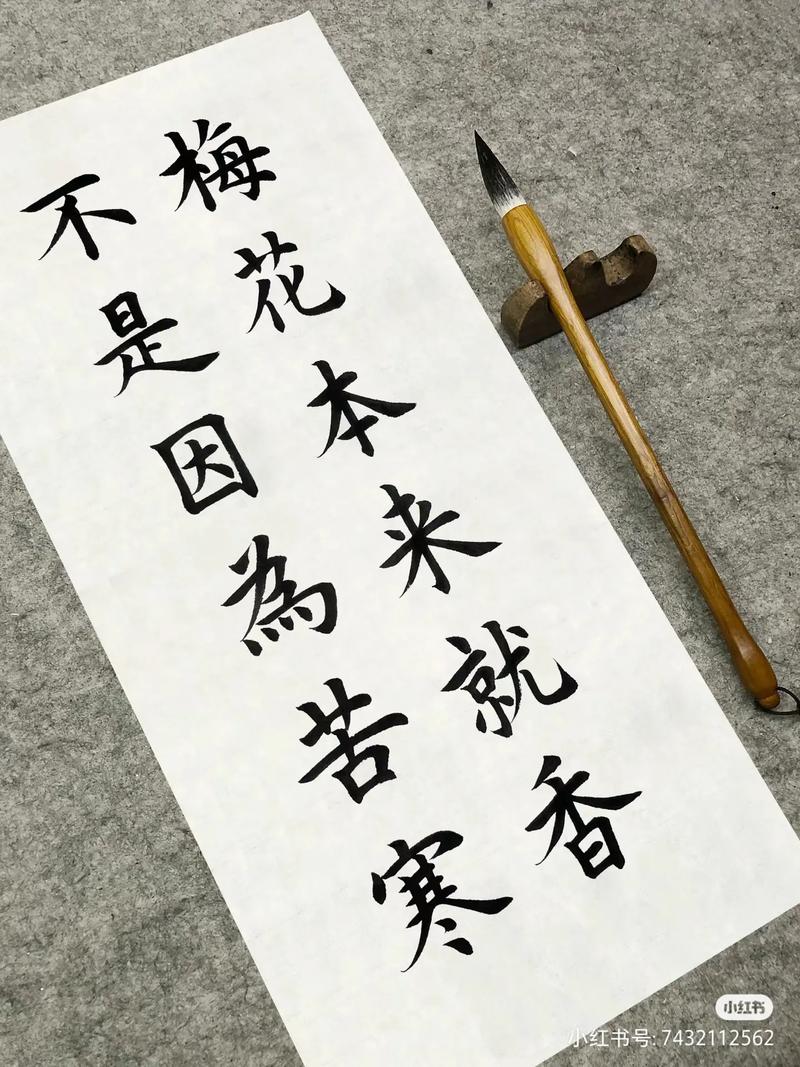 梅花本来就香
不是因為苦寒
小红书
小红书号: 7432112562